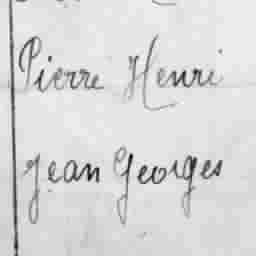 Pierre Henri
Jean Georges